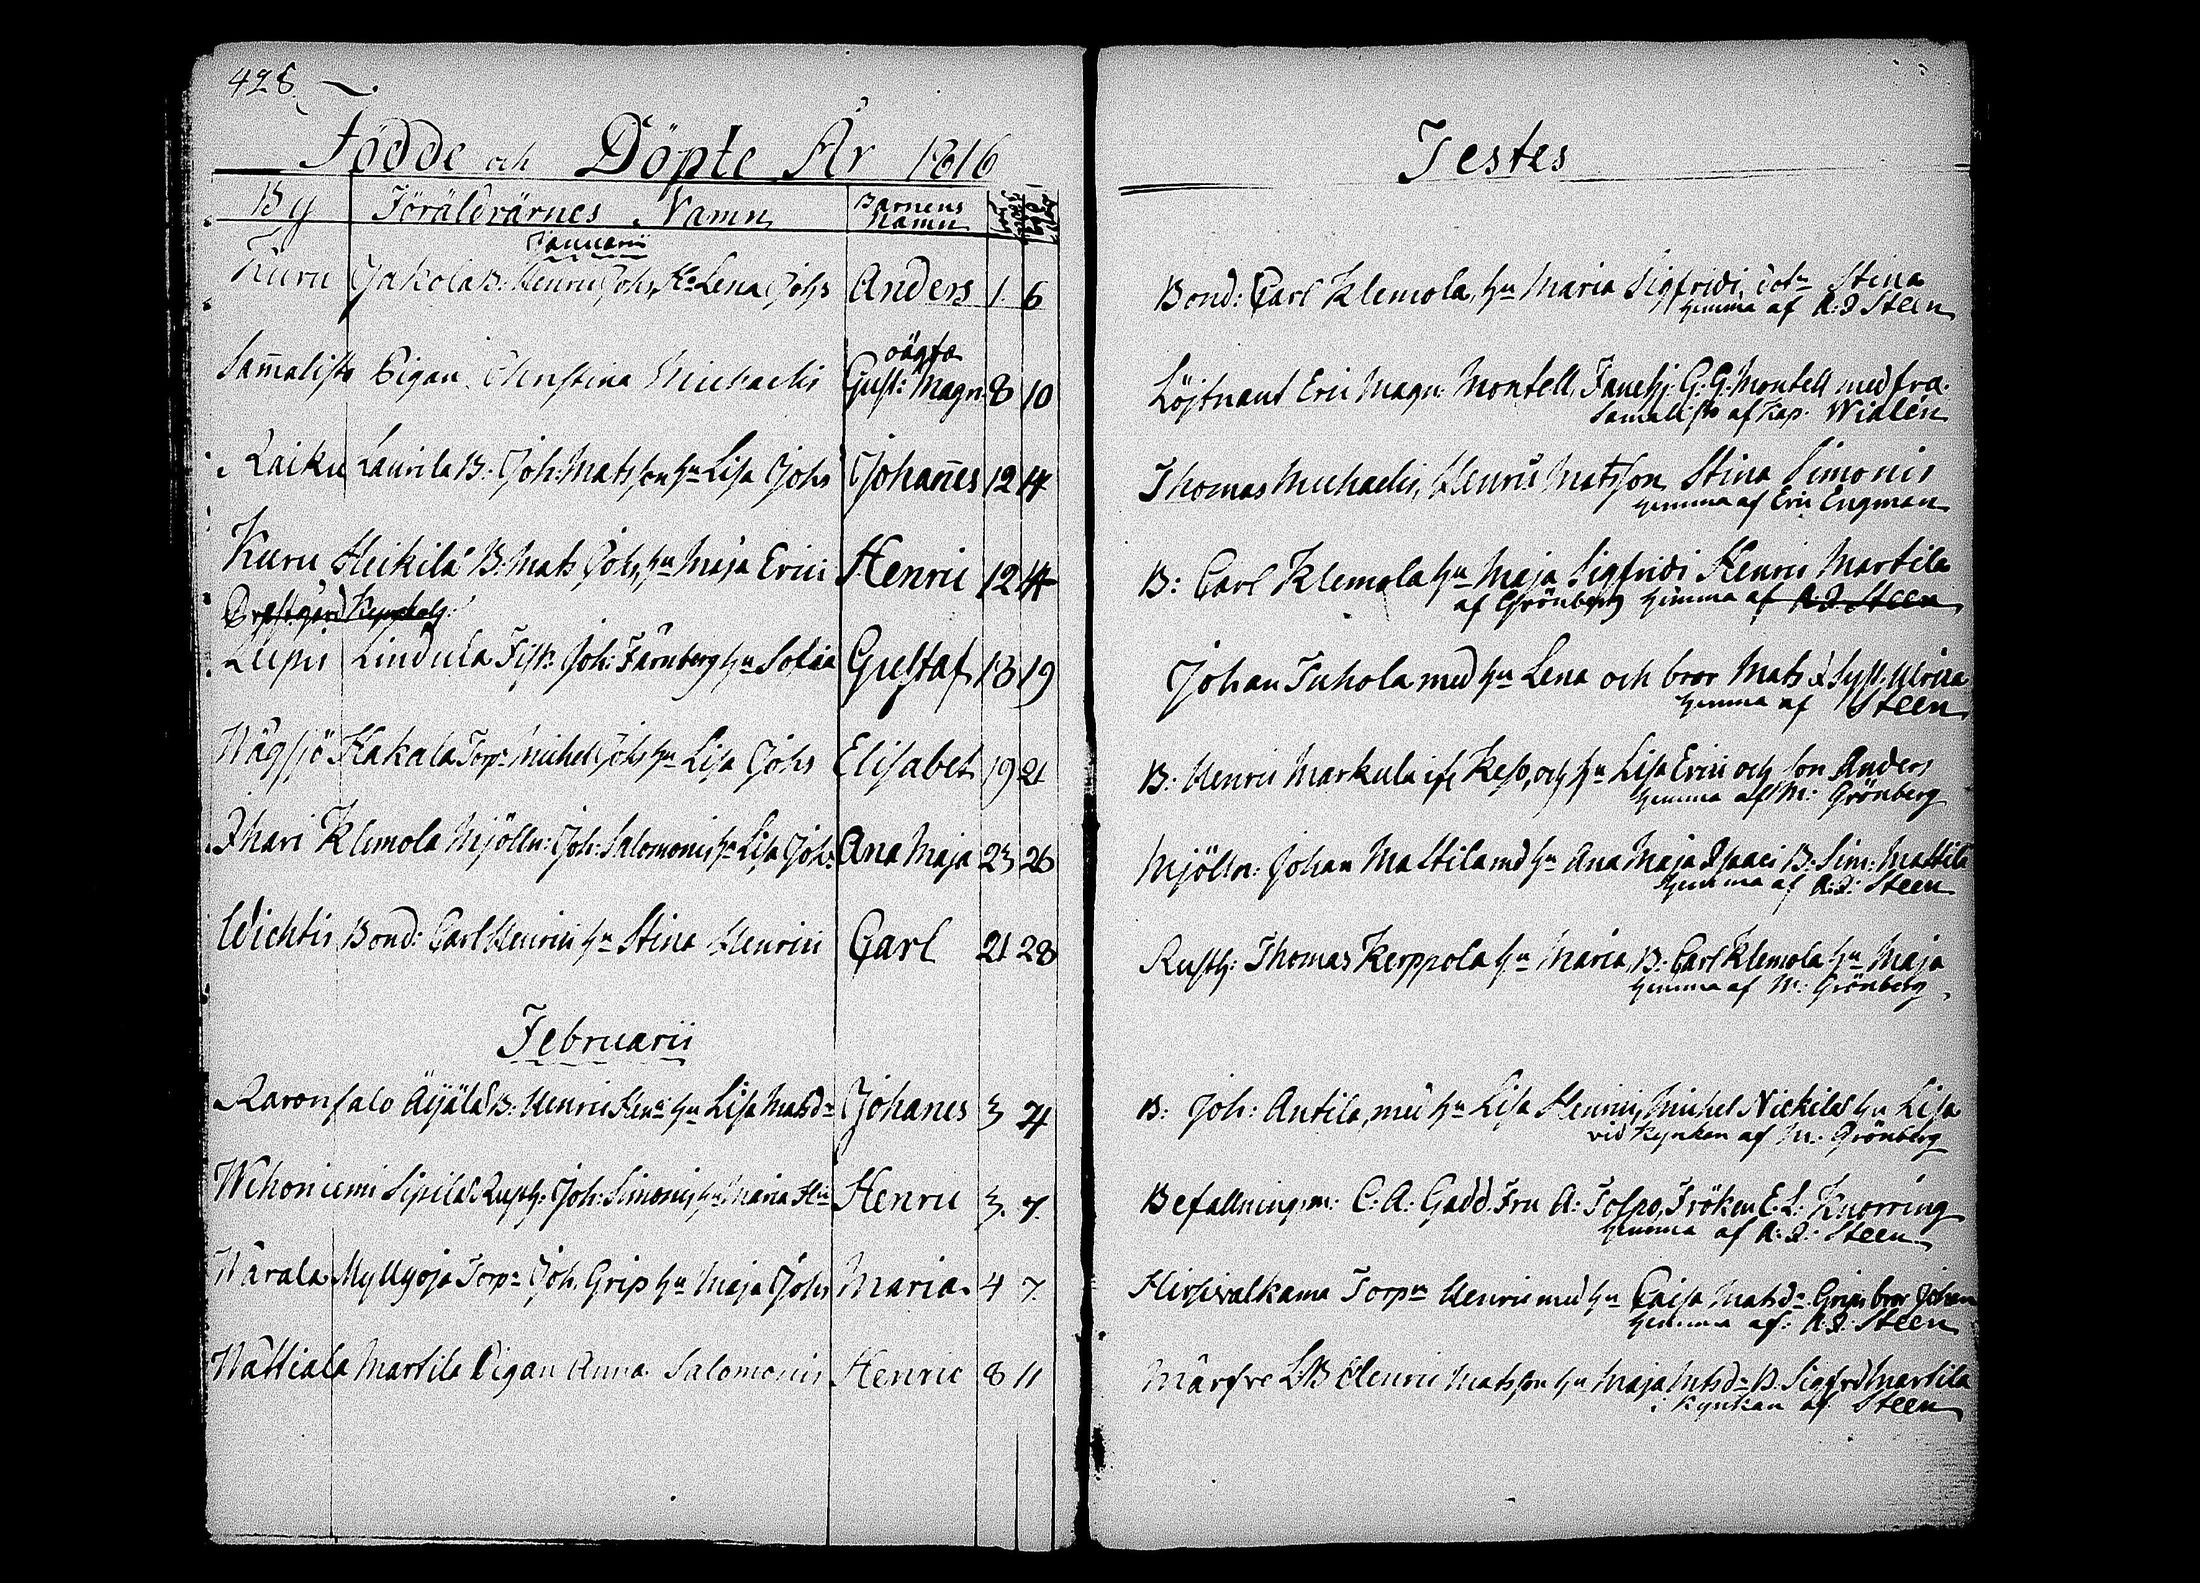 428
Födde och Döpte År 1816
By Föräldrärnes Namn Barnens Namn
Januarii
Kuru Jakola B: Henric Johs Ha Lena Johs Anders 1. 6
oägta
Sam̄alisto Pigan Christina Michaelis Gust: Magn. 8 10
Raiku Laurila B: Joh: Matsson hu Lisa Johs Johan̄es 12 14
Kuru Heikilä B: Mats Johs hu Maja Erici Henric 12 14
Liipis Lindula Joh: Färnberg hu Sofia Gustaf 13 19
Wägsjö Hakala Torp: Michel Johs hu Lisa Johs Elisabet 19 21
Ihari Klemola Mjöln: Joh: Salomonis hu Lisa Joh: Ana Maja 23 26
Wichtis Bond: Carl Henrici hu Stina Henrici Carl 21 28
Februarii
Raronsalo Äijälä B: Henric hu Lisa Matsdr Johanes 3 4
Wehoniemi Sipilä Rusth: Joh: Simonis hu Maria Henric 3. 7.
Wärala Myllyoja Torpr Joh. Grip hu Maja Johs Maria 4 7.
Wättiala Martila Pigan Anna Salomonis Henric 8 11
Testes
Bond: Carl Klemola, hu Maria Sigfridi, dotr Stina
hemma af A: I Steen
Löjtnant Eric Magn: Montell, Fanehj: G: G: Montell med fru
Samalisto af Kap. Widlén
Thomas Michaelis, Henric Matsson Stina Simonis
hemma af Eric Engman
B: Carl Klemola hu Maja Sigfridi Henric Martila
af Grönberg hemma af A I Steen
Johan Juhola med hu Lena och bror Mats & Syst. Ulrica
hemma af Steen
B: Henric Markula och hu Lisa Erici och son Anders
hemma af M: Grönberg
Mjöln: Johan Mattila md hu Ana Maja Isaaci B: Sim: Mattila
hemma af A: I: Steen
Rusth: Thomas Kerppola hu Maria, B: Carl Klemola hu Maja
hemma af M: Grönberg
B: Joh: Antila, med hu Lisa Henrici, Michel Nickilä hu Lisa
vid kyrkan af M. Grönberg
Befallningsm: C: A: Gadd Fru A: Tolpo, Fröken E: L: Knorring
hemma af A: I: Steen
Hirsivalkama Torpr Henric med hu Caisa Matsdr Grips bror Johan
hemma af: A: I: Steen
Henric Matsson hu Maja Matsdr B: Sigfrd Martila
i kyrkan af Steen